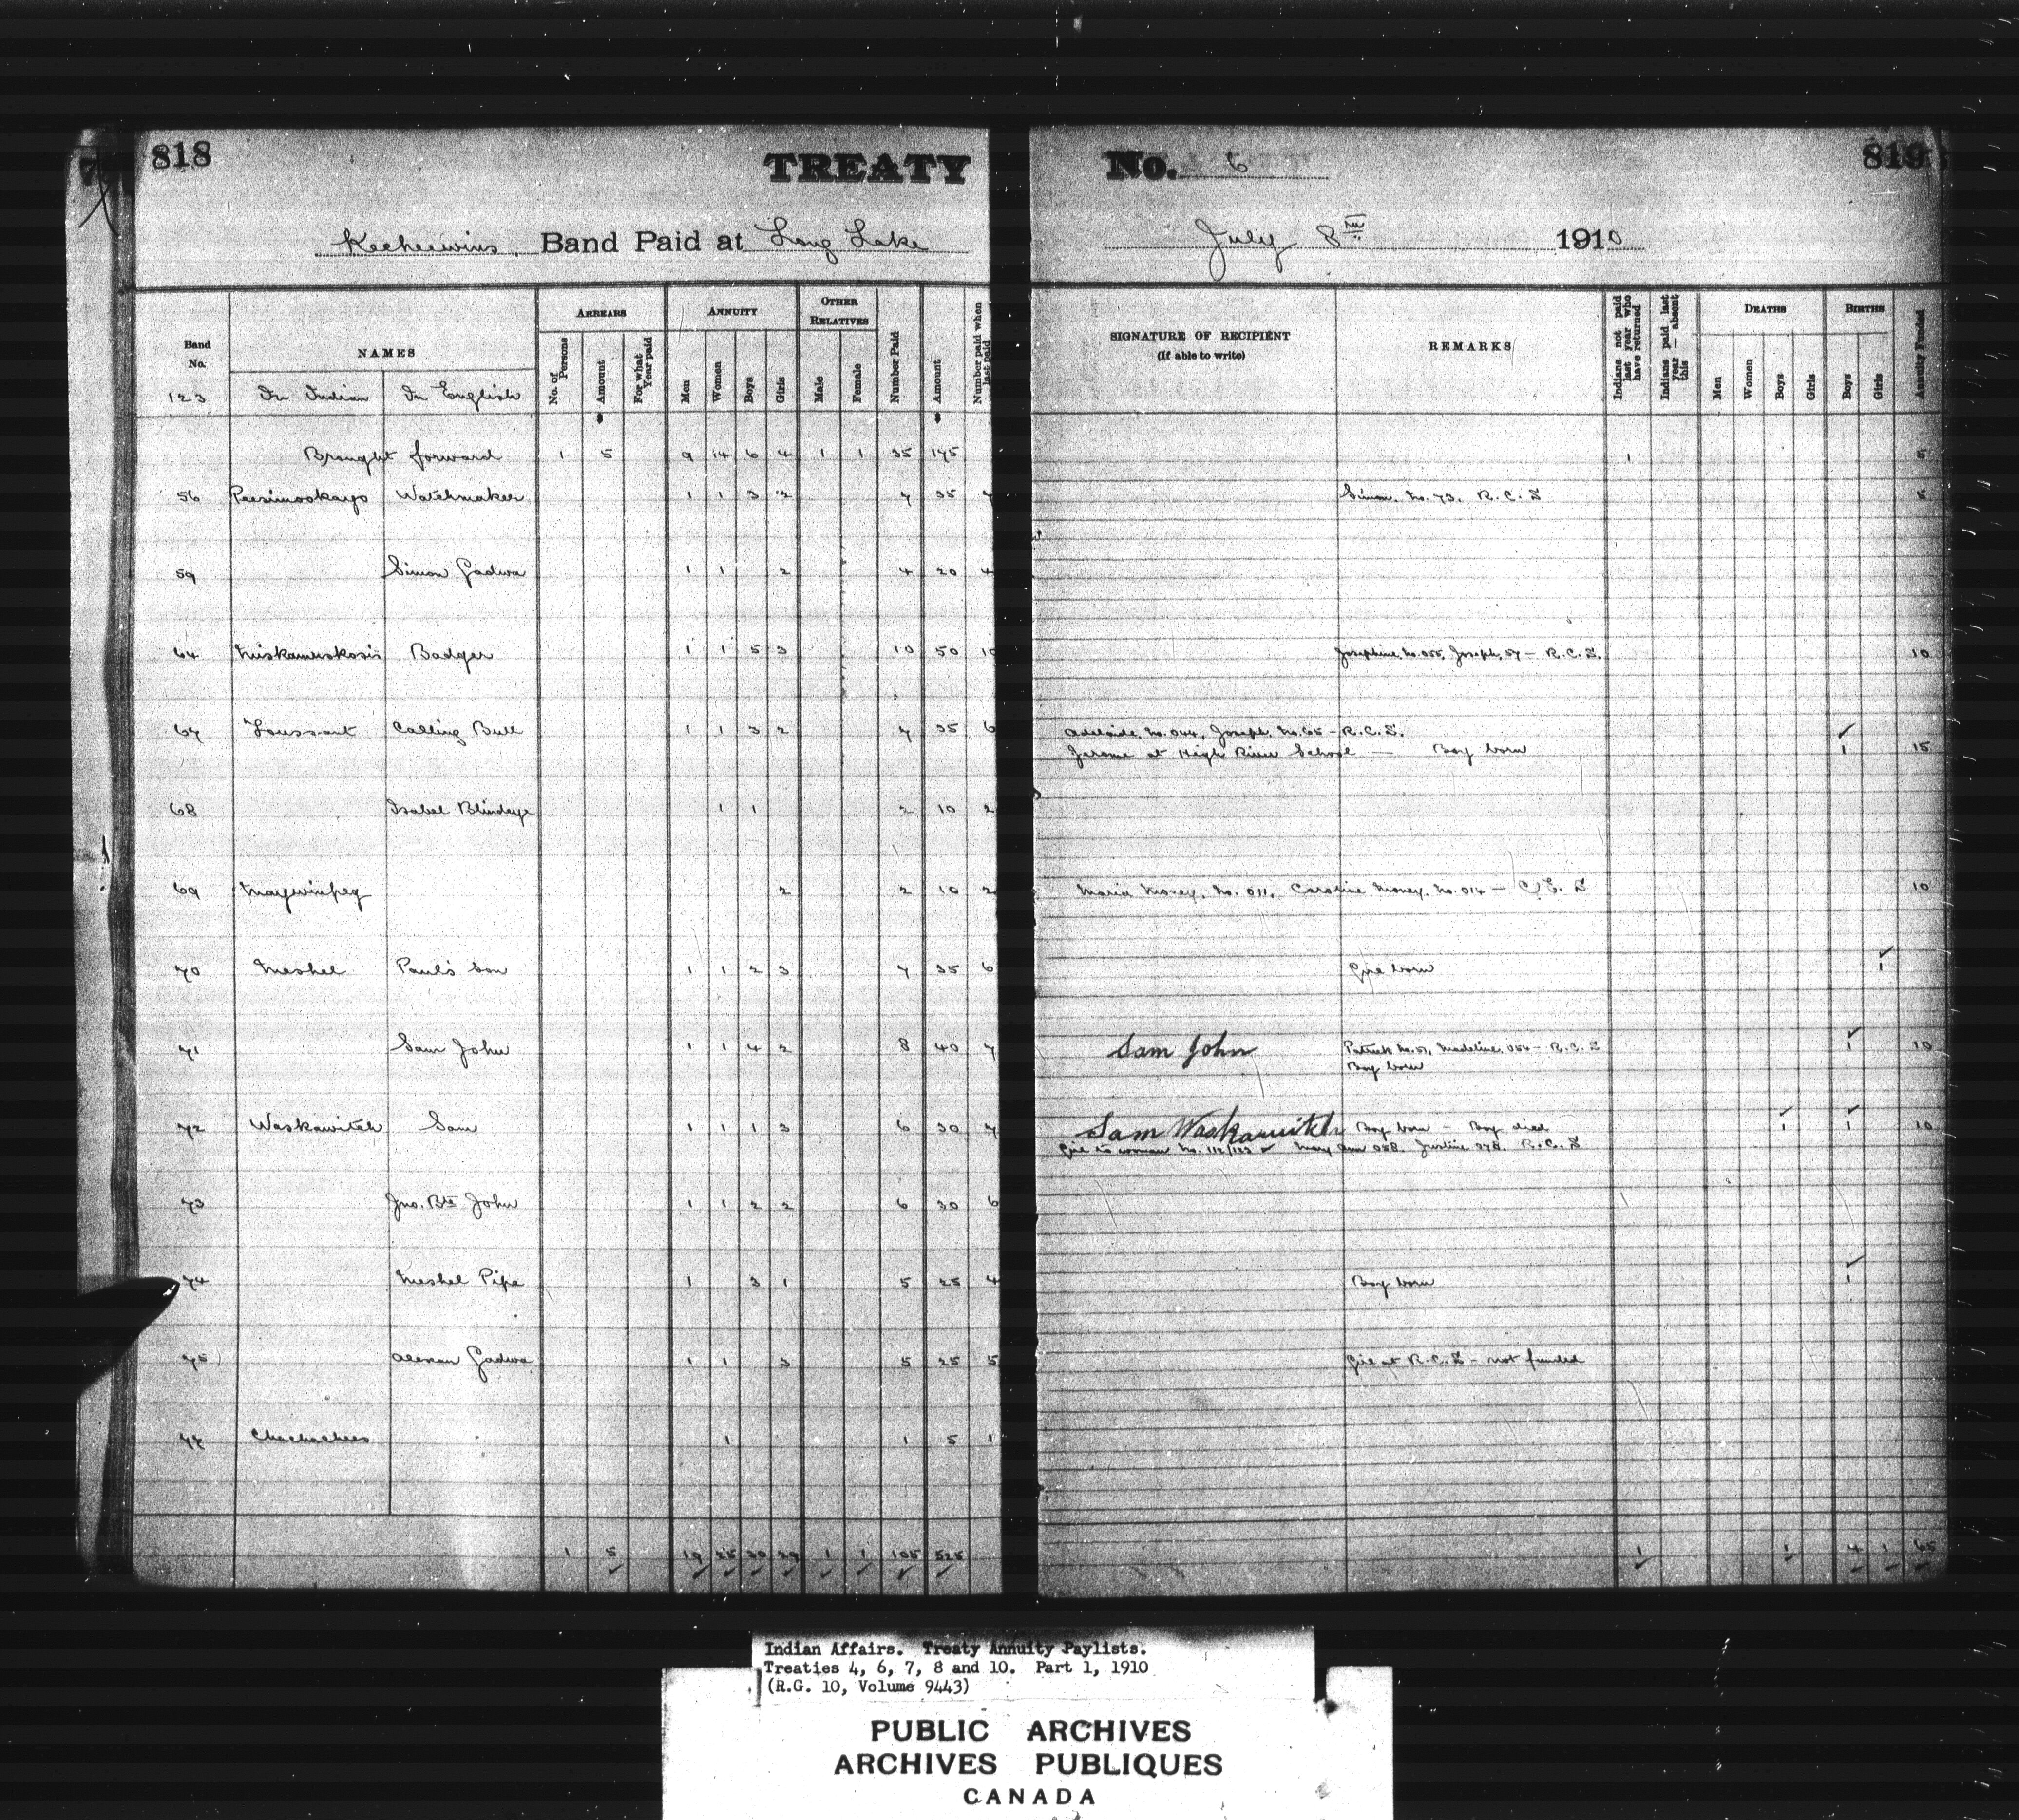 818 TREATY No. 6 819
Keeheewins Band Paid at Long Lake July 8th 1910
Band No. NAMES ARREARS ANNUITY OTHER RELATIVES Number Paid Amount Number paid when last paid SIGNATURE OF RECIPIENT (If able to write) REMARKS Indians not paid last year who have returned Indians paid last year — absent this DEATHS BIRTHS Annuity Funded
123 In Indian In English No. of Persons Amount For what Year paid Men Women Boys Girls Male Female Men Women Boys Girls Boys Girls
Brought forward 1 5 9 14 6 4 1 1 35 175 1 5
56 Peesimookayo Watchmaker 1 1 3 2 7 35 7 Simon, No. 73, R.C.S 5
59 Simon Gadwa 1 1 2 4 20 4
64 Badger 1 1 5 3 10 50 10 Josephine, No. 055, Joseph, 57 — R.C.S. 10
67 Toussant Calling Bull 1 1 3 2 7 35 6 Adelaide, No. 044, Joseph, No. 65 - R.C.S. ✓
Jerome at High River School — Boy born 1 15
68 Isabel Blindeye 1 1 2 10 2
69 Maywinpeg 2 2 10 2 Maria Money, No. 011, Caroline Money, No. 014 — C.E.S 10
70 Meshel Paul's Son 1 1 2 3 7 35 6 Girl born ✓ 1
71 Sam John 1 1 4 2 8 40 7 Sam John Patrick No. 51, Madeline, 054 — R.C.S ✓ 1 10
Boy born
72 Waskawitch Sam 1 1 1 3 6 30 7 Sam Waskawitch Boy born — Boy died ✓ 1 ✓ 1 10
Girl to woman No. 112/123 ✓ Mary Ann 058, Justine 078, R.C.S
73 Jno. Bte John 1 1 2 2 6 30 6
74 Meshel Pipe 1 3 1 5 25 4 Boy born ✓ 1
75 Gadwa 1 1 3 5 25 5 Girl at R.C.S — not funded
77 Chachachees 1 1 5 1
1 5 19 25 30 29 1 1 105 525 1 1 4 1 65
Indian Affairs. Treaty Annuity Paylists.
Treaties 4, 6, 7, 8 and 10. Part 1, 1910
(R.G. 10, Volume 9443)
PUBLIC ARCHIVES
ARCHIVES PUBLIQUES
CANADA